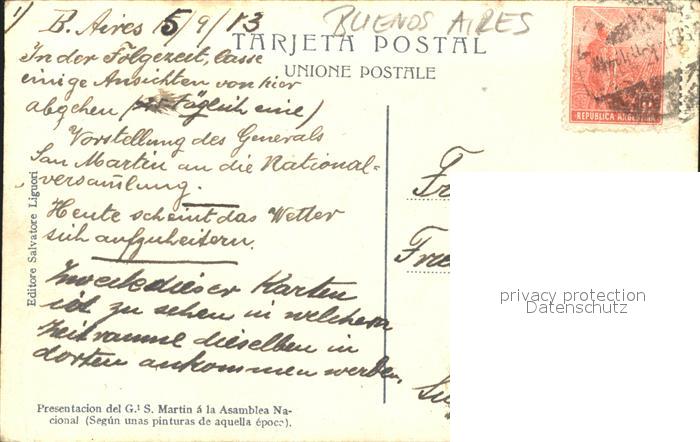 1)
B. Aires 5/9/13
BUENOS AIRES
TARJETA POSTAL
UNIONE POSTALE
REPUBLICA ARGEN
In der Folgezeit, lasse
einige Ansichten von hier
abgehen ( täglich eine)
Vorstellung des Generals
San Martin an die National-
versam̄lung.
Heute scheint das Wetter
sich aufzuheitern.
Zweck dieser Karten
ist zu sehen in welchem
Zeitraume dieselben in
dorten ankommen werden.
Editore Salvatore Liguori
Presentacion del G.ˡ S. Martin á la Asamblea Na-
cional (Según unas pinturas de aquella época).
privacy protection
Datenschutz